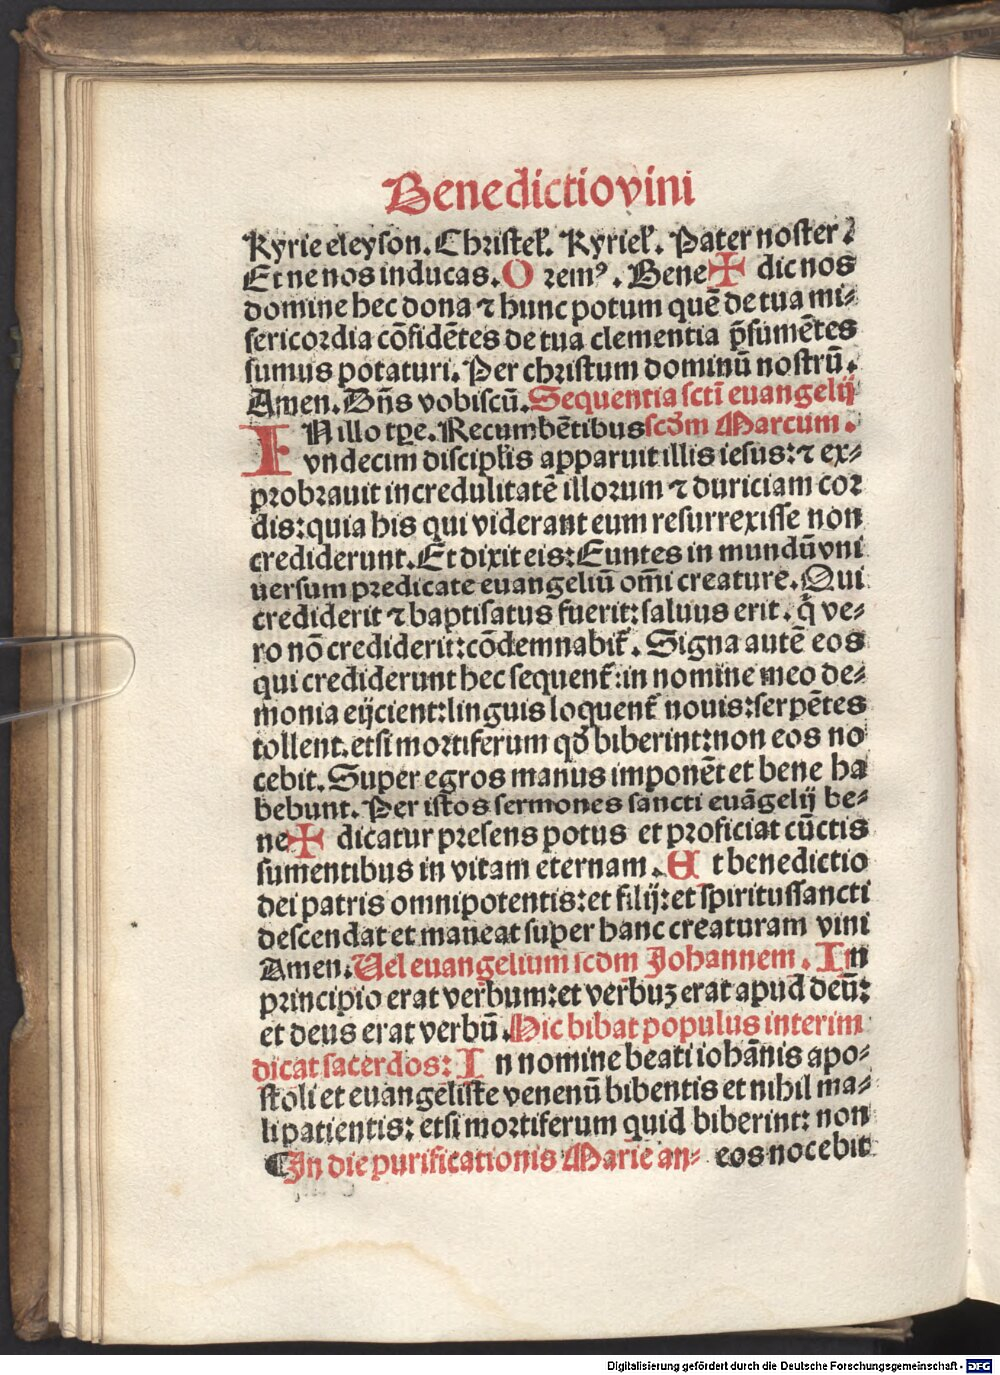 Benedictio vini
Kyrie eleyson. Christel̄. Kyriel̄. Pater noster:
Et ne nos inducas. Oremꝰ. Bene✠dic nos
domine hec dona ⁊ hunc potum quē de tua mi⸗
sericordia cōfidētes de tua clementia p̄sumētes
sumus potaturi. Per christum dominū nostrū.
Amen. Dn̄s vobiscū. Sequentia sctī euangelij
IN illo tꝑe. Recumbētibus scd̄m Marcum.
vndecim discipl̄is apparuit illis iesus: ⁊ ex⸗
probrauit incredulitatē illorum ⁊ duriciam cor
dis: quia his qui viderant eum resurrexisse non
crediderunt. Et dixit eis: Euntes in mundū vni
uersum predicate euangeliū om̄i creature. Qui
crediderit ⁊ baptisatus fuerit: saluus erit. q̇ ve⸗
ro nō crediderit: cōdemnabit̄. Signa autē eos
qui crediderunt hec sequent̄: in nomine meo de⸗
monia eijcient: linguis loquent̄ nouis: serpētes
tollent. etsi mortiferum qd̄ biberint: non eos no
cebit. Super egros manus imponēt et bene ha
bebunt. Per istos sermones sancti euāgelij be⸗
ne✠dicatur presens potus et proficiat cūctis
sumentibus in vitam eternam. Et benedictio
dei patris omnipotentis: et filij: et spiritussancti
descendat et maneat super hanc creaturam vini
Amen. Uel euangelium scdm Johannem. In
principio erat verbum: et verbuꝫ erat apud deū:
et deus erat verbū. Hic bibat populus interim
dicat sacerdos: In nomine beati iohānis apo⸗
stoli et euangeliste venenū bibentis et nihil ma⸗
li patientis: etsi mortiferum quid biberint: non
⸿In die purificationis Marie an⸗ eos nocebit
Digitalisierung gefördert durch die Deutsche Forschungsgemeinschaft - DFG